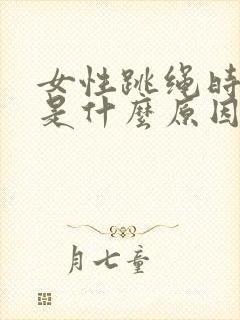 女性跳绳时
是什麽原因
月七童